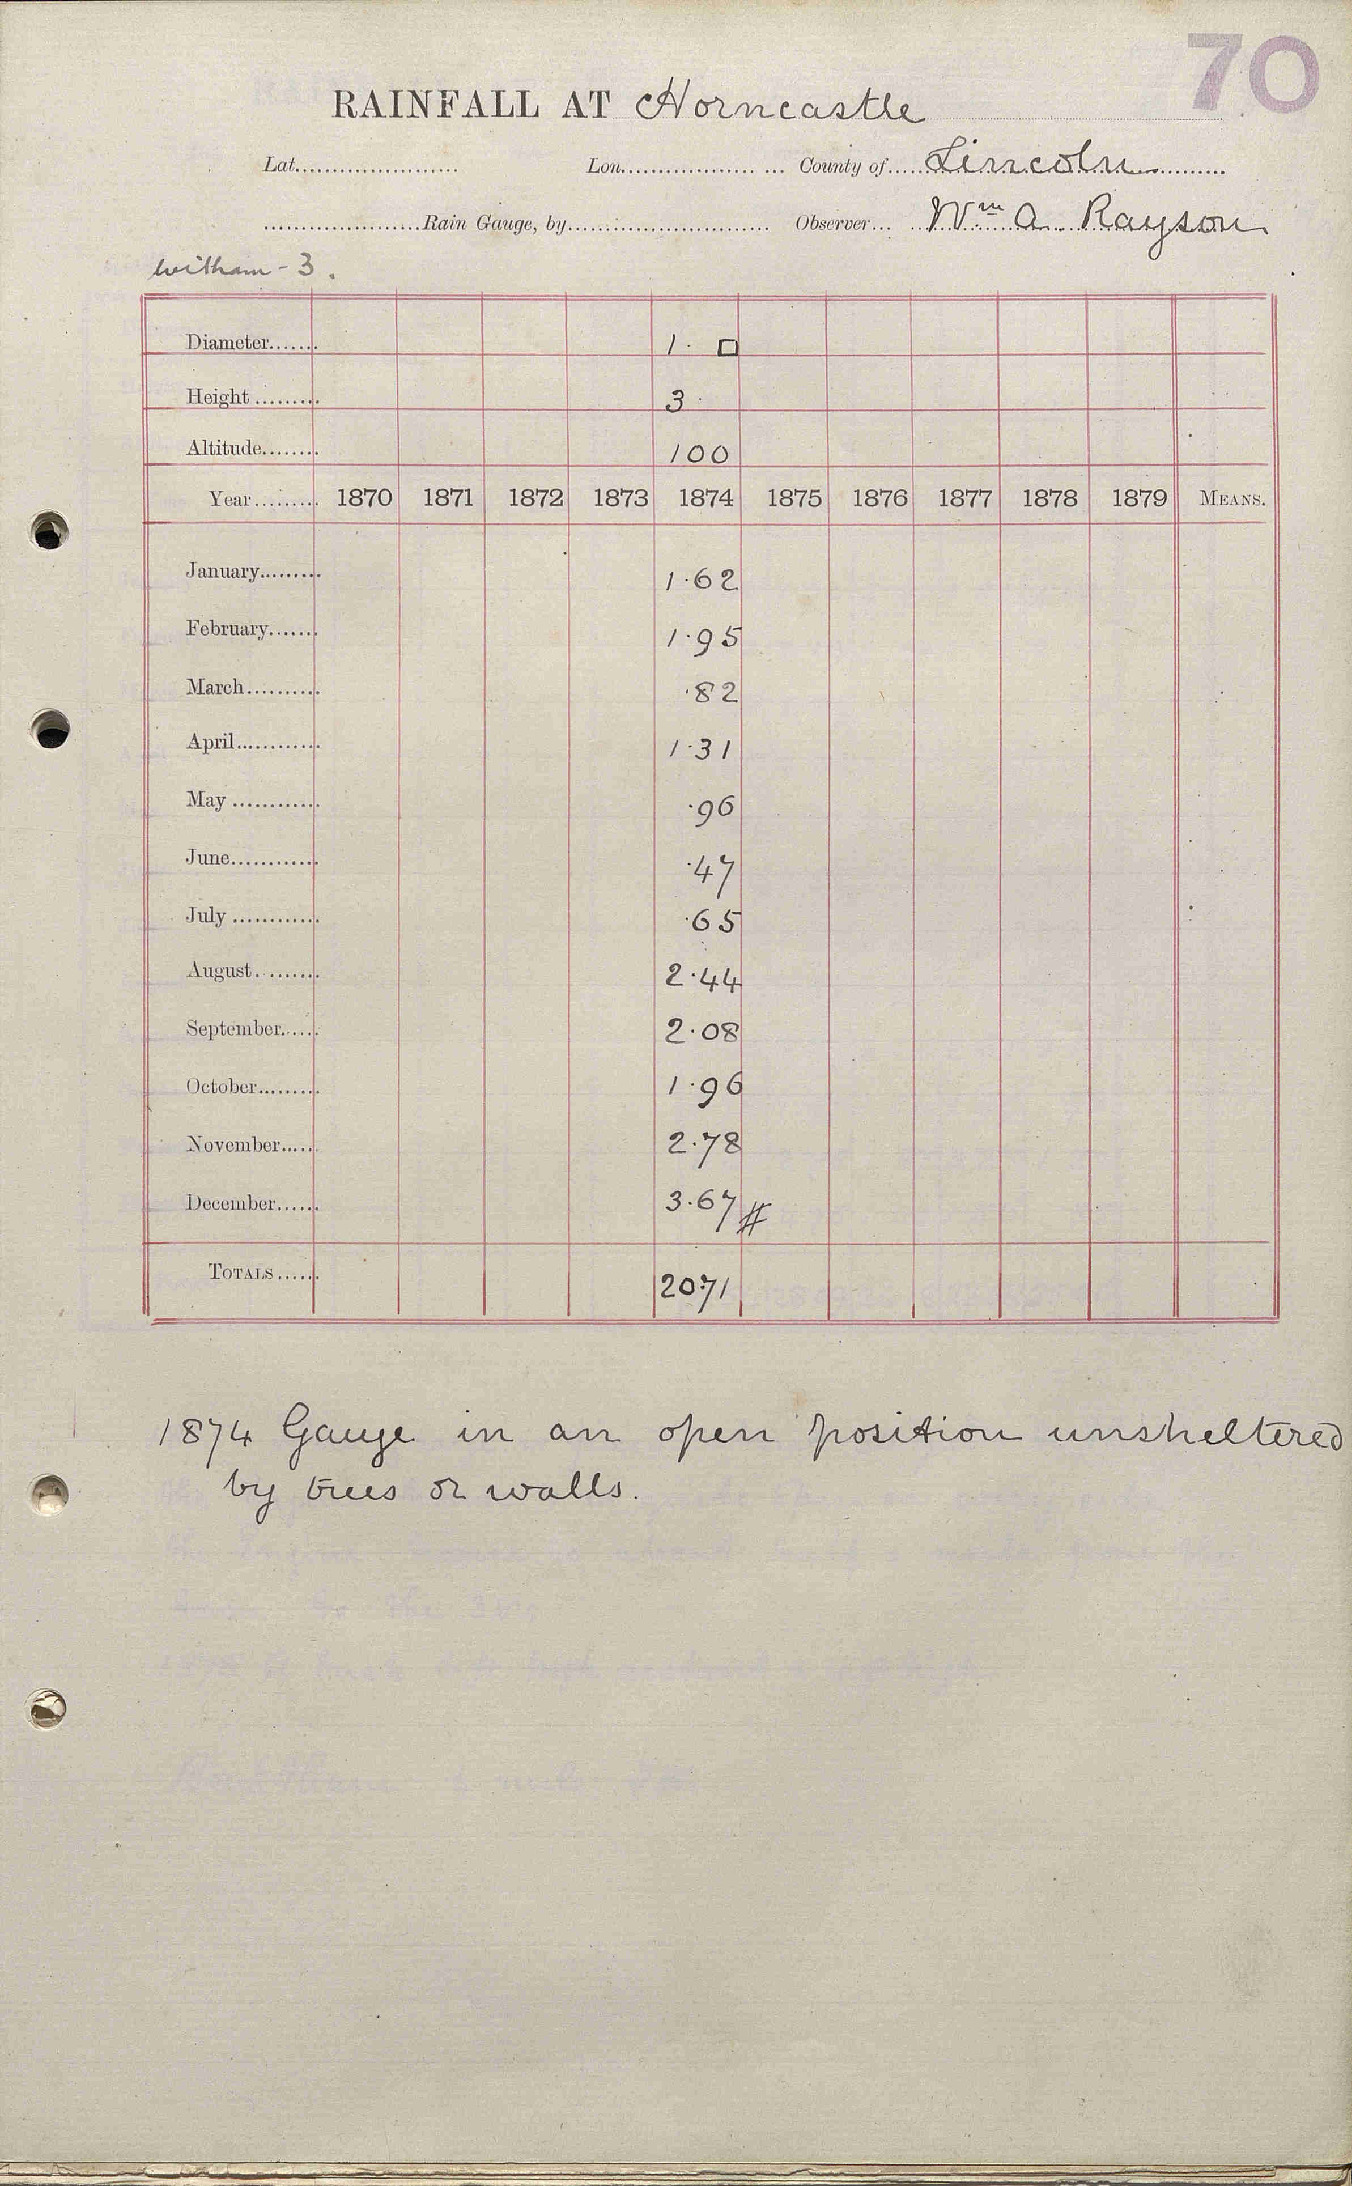 70
RAINFALL AT Horncastle
Lat...................... Lon................... ... County of.....Lincoln...........
......................Rain Gauge, by............................ Observer... Wm A Rayson
Witham - 3.
Diameter....... 1. □
Height ......... 3
Altitude........ 100
Year......... 1870 1871 1872 1873 1874 1875 1876 1877 1878 1879 MEANS.
January......... 1.62
February....... 1.95
March.......... .82
April............ 1.31
May ............ .96
June............ .47
July ............ .65
August......... 2.44
September...... 2.08
October......... 1.96
November..... 2.78
December...... 3.67 #
TOTALS...... 20.71
1874 Gauge in an open position unsheltered
by trees or walls.